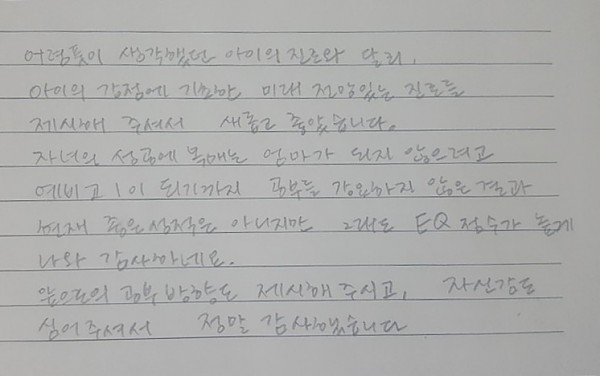 어렴풋이 생각했던 아이의 진로와 달리,
아이의 강점에 기초한 미래 전망있는 진로를
제시해 주셔서 새롭고 좋았습니다.
자녀의 성공에 목매는 엄마가 되지 않으려고
예비고1이 되기까지 공부를 강요하지 않은 결과
현재 좋은 성적은 아니지만 그래도 EQ 점수가 높게
나와 감사하네요.
앞으로의 공부 방향도 제시해 주시고, 자신감도
심어주셔서 정말 감사했습니다